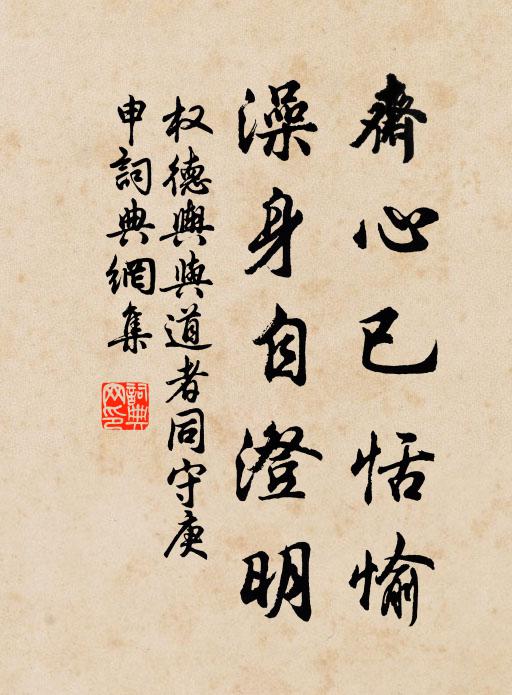 齋心已恬愉
澡身自澄明
权德輿與道者同守庚
申詞典網集
詞典
网印